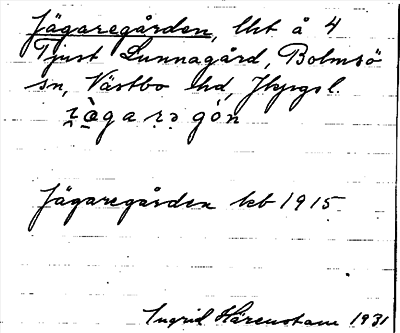 Jägaregården, lht å 4
Tjust Sunnagård, Bolmsö
sn, Västbo hd, Jkpgs l.
i̯ạ̀garə gọ́n
Jägaregården kb 1915
Ingrid Härenstam 1931